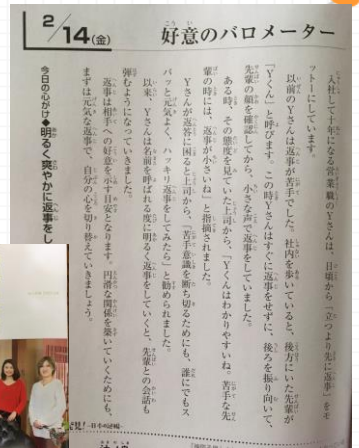 2/14(金)
好意のバロメーター
入社して十年になる営業職のYさんは、日頃から「立つより先に返事」をモ
ットーにしています。
以前のYさんは返事が苦手でした。社内を歩いていると、後方にいた先輩が
「Yくん」と呼びます。この時Yさんはすぐに返事をせずに、後ろを振り向いて、
先輩の顔を確認してから、小さな声で返事をしていました。
ある時、その態度を見ていた上司から、「Yくんはわかりやすいね。苦手な先
輩の時には、返事が小さいね」と指摘されました。
Yさんが返答に困ると上司から、「苦手意識を断ち切るためにも、誰にでもス
パッと元気よく、ハッキリ返事をしてみたら」と勧められました。
以来、Yさんは名前を呼ばれる度に明るく返事をしていくと、先輩との会話も
弾むようになっていきました。
返事は相手への好意を示す目安となります。円滑な関係を築いていくためにも、
まずは元気な返事で、自分の心を切り替えていきましょう。
今日の心がけ◆明るく爽やかに返事をし